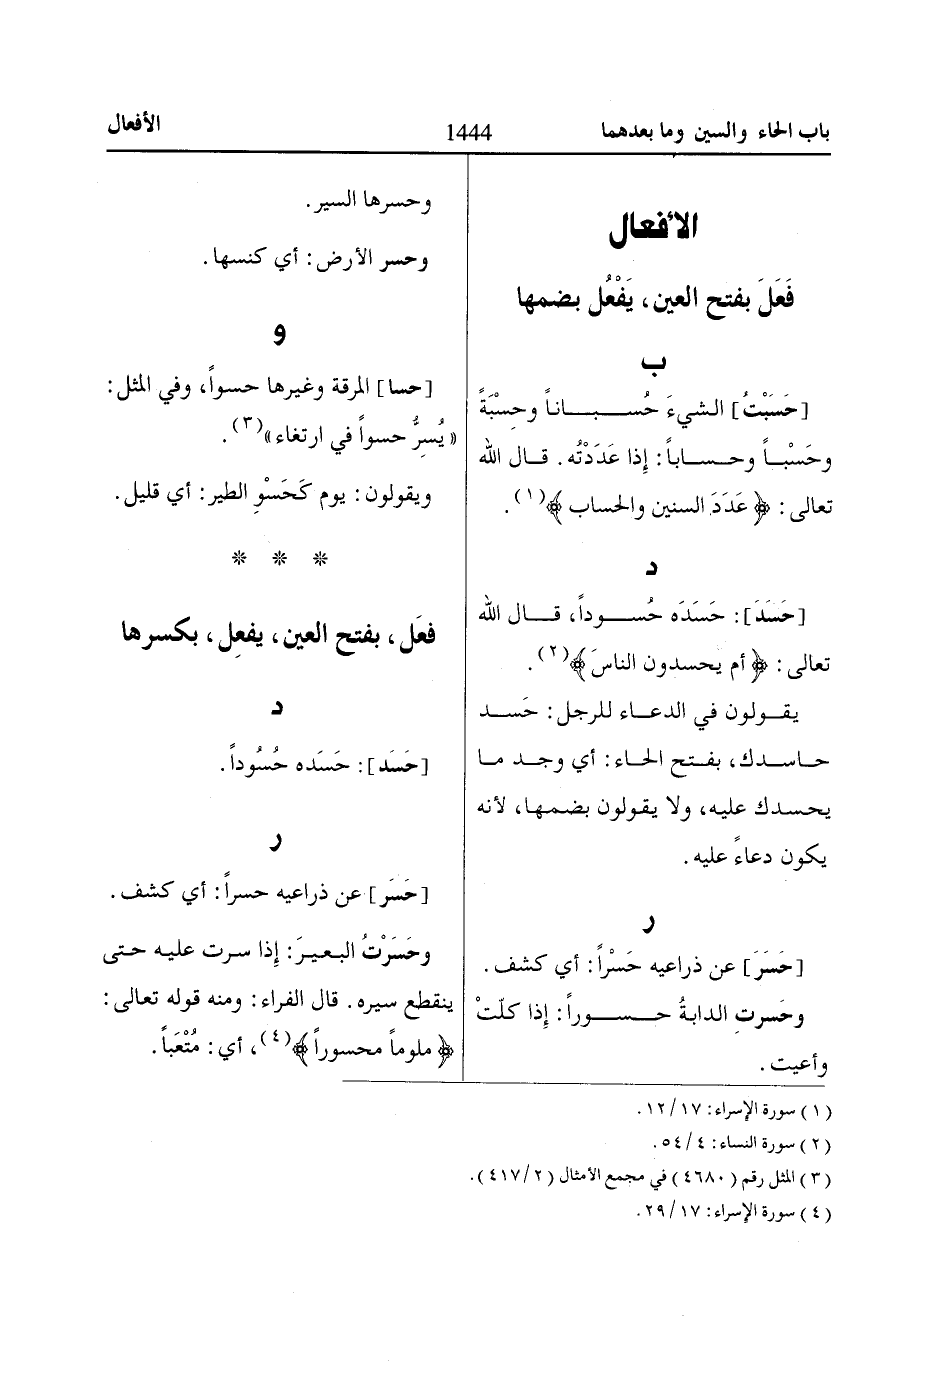 باب الحاء والسين وما بعدهما
1444
الأفعال
الأفعال
فَعَلَ بفتح العين، يَفْعُل بضمها
ب
[حَسَبْتُ] الشيءَ حُسباناً وحِسْبَةً
وحَسْباً وحساباً: إذا عَدَدْتُه. قال الله
تعالى: ﴿عَدَدَ السنين والحساب﴾(١).
د
[حَسَدَ]: حَسَدَه حُسوداً، قال الله
تعالى: ﴿أم يحسدون الناسَ﴾(٢).
يقولون في الدعاء للرجل: حَسد
حاسدك، بفتح الحاء: أي وجد ما
يحسدك عليه، ولا يقولون بضمها، لأنه
يكون دعاءً عليه.
ر
[حَسَرَ] عن ذراعيه حَسْراً: أي كشف.
وحَسرت الدابةُ حسوراً: إذا كلّتْ
وأعيت.
وحسرها السير.
وحسر الأرض: أي كنسها.
و
[حسا] المرقة وغيرها حسواً، وفي المثل:
«يُسِرُّ حسواً في ارتغاء»(٣).
ويقولون: يوم كَحَسْوِ الطير: أي قليل.
* * *
فعَل، بفتح العين، يفعِل، بكسرها
د
[حَسَد]: حَسَده حُسُوداً.
ر
[حَسَر] عن ذراعيه حسراً: أي كشف.
وحَسَرْتُ البعيرَ: إذا سرت عليه حتى
ينقطع سيره. قال الفراء: ومنه قوله تعالى:
﴿ملوماً محسوراً﴾(٤)، أي: مُتْعَباً.
(١) سورة الإسراء: ١٢/١٧.
(٢) سورة النساء: ٥٤/٤.
(٣) المثل رقم (٤٦٨٠) في مجمع الأمثال (٤١٧/٢).
(٤) سورة الإسراء: ٢٩/١٧.